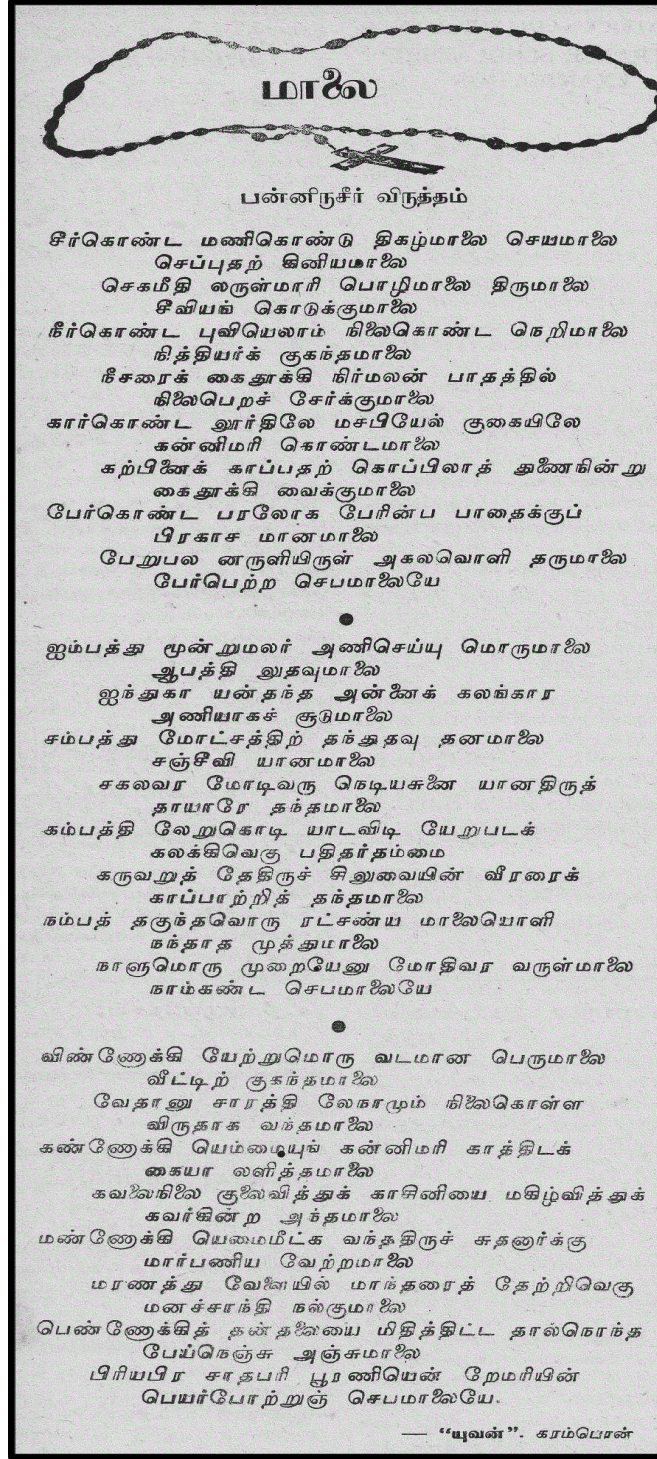 மாலை
பன்னிருசீர் விருத்தம்
சீர்கொண்ட மணிகொண்டு திகழ்மாலை செயமாலை
செப்புதற் கினியமாலை
செகமீதி லருள்மாரி பொழிமாலை திருமாலை
சீவியங் கொடுக்குமாலை
நீர்கொண்ட புவியெலாம் நிலைகொண்ட நெறிமாலை
நித்தியர்க் குகந்தமாலை
நீசரைக் கைதூக்கி நிர்மலன் பாதத்தில்
நிலைபெறச் சேர்க்குமாலை
கார்கொண்ட லூர்திலே மசபியேல் குகையிலே
கன்னிமரி கொண்டமாலை
கற்பினைக் காப்பதற் கொப்பிலாத் துணைநின்று
கைதூக்கி வைக்குமாலை
பேர்கொண்ட பரலோக பேரின்ப பாதைக்குப்
பிரகாச மானமாலை
பேறுபல னருளியிருள் அகலவொளி தருமாலை
பேர்பெற்ற செபமாலையே
ஐம்பத்து மூன்றுமலர் அணிசெய்யு மொருமாலை
ஆபத்தி லுதவுமாலை
ஐந்துகா யன்தந்த அன்னைக் கலங்கார
அணியாகச் சூடுமாலை
சம்பத்து மோட்சத்திற் தந்துதவு தனமாலை
சஞ்சீவி யானமாலை
சகலவர மோடிவரு நெடியசுனை யானதிருத்
தாயாரே தந்தமாலை
கம்பத்தி லேறுகொடி யாடவிடி யேறுபடக்
கலக்கிவெகு பதிதர்தம்மை
கருவறுத் தேதிருச் சிலுவையின் வீரரைக்
காப்பாற்றித் தந்தமாலை
நம்பத் தகுந்தவொரு ரட்சண்ய மாலையொளி
நந்தாத முத்துமாலை
நாளுமொரு முறையேனு மோதிவர வருள்மாலை
நாம்கண்ட செபமாலையே
விண்ணோக்கி யேற்றுமொரு வடமான பெருமாலை
வீட்டிற் குகந்தமாலை
வேதானு சாரத்தி லேநாமும் நிலைகொள்ள
விருதாக வந்தமாலை
கண்ணோக்கி யெம்மையுங் கன்னிமரி காத்திடக்
கையா லளித்தமாலை
கவலைநிலை குலைவித்துக் காசினியை மகிழ்வித்துக்
கவர்கின்ற அந்தமாலை
மண்ணோக்கி யெமைமீட்க வந்ததிருச் சுதனார்க்கு
மார்பணிய வேற்றமாலை
மரணத்து வேளையில் மாந்தரைத் தேற்றிவெகு
மனச்சாந்தி நல்குமாலை
பெண்ணோக்கித் தன்தலையை மிதித்திட்ட தால்நொந்த
பேய்நெஞ்சு அஞ்சுமாலை
பிரியபிர சாதபரி பூரணியென் றேமரியின்
பெயர்போற்றுஞ் செபமாலையே.
— “யுவன்”. கரம்பொன்